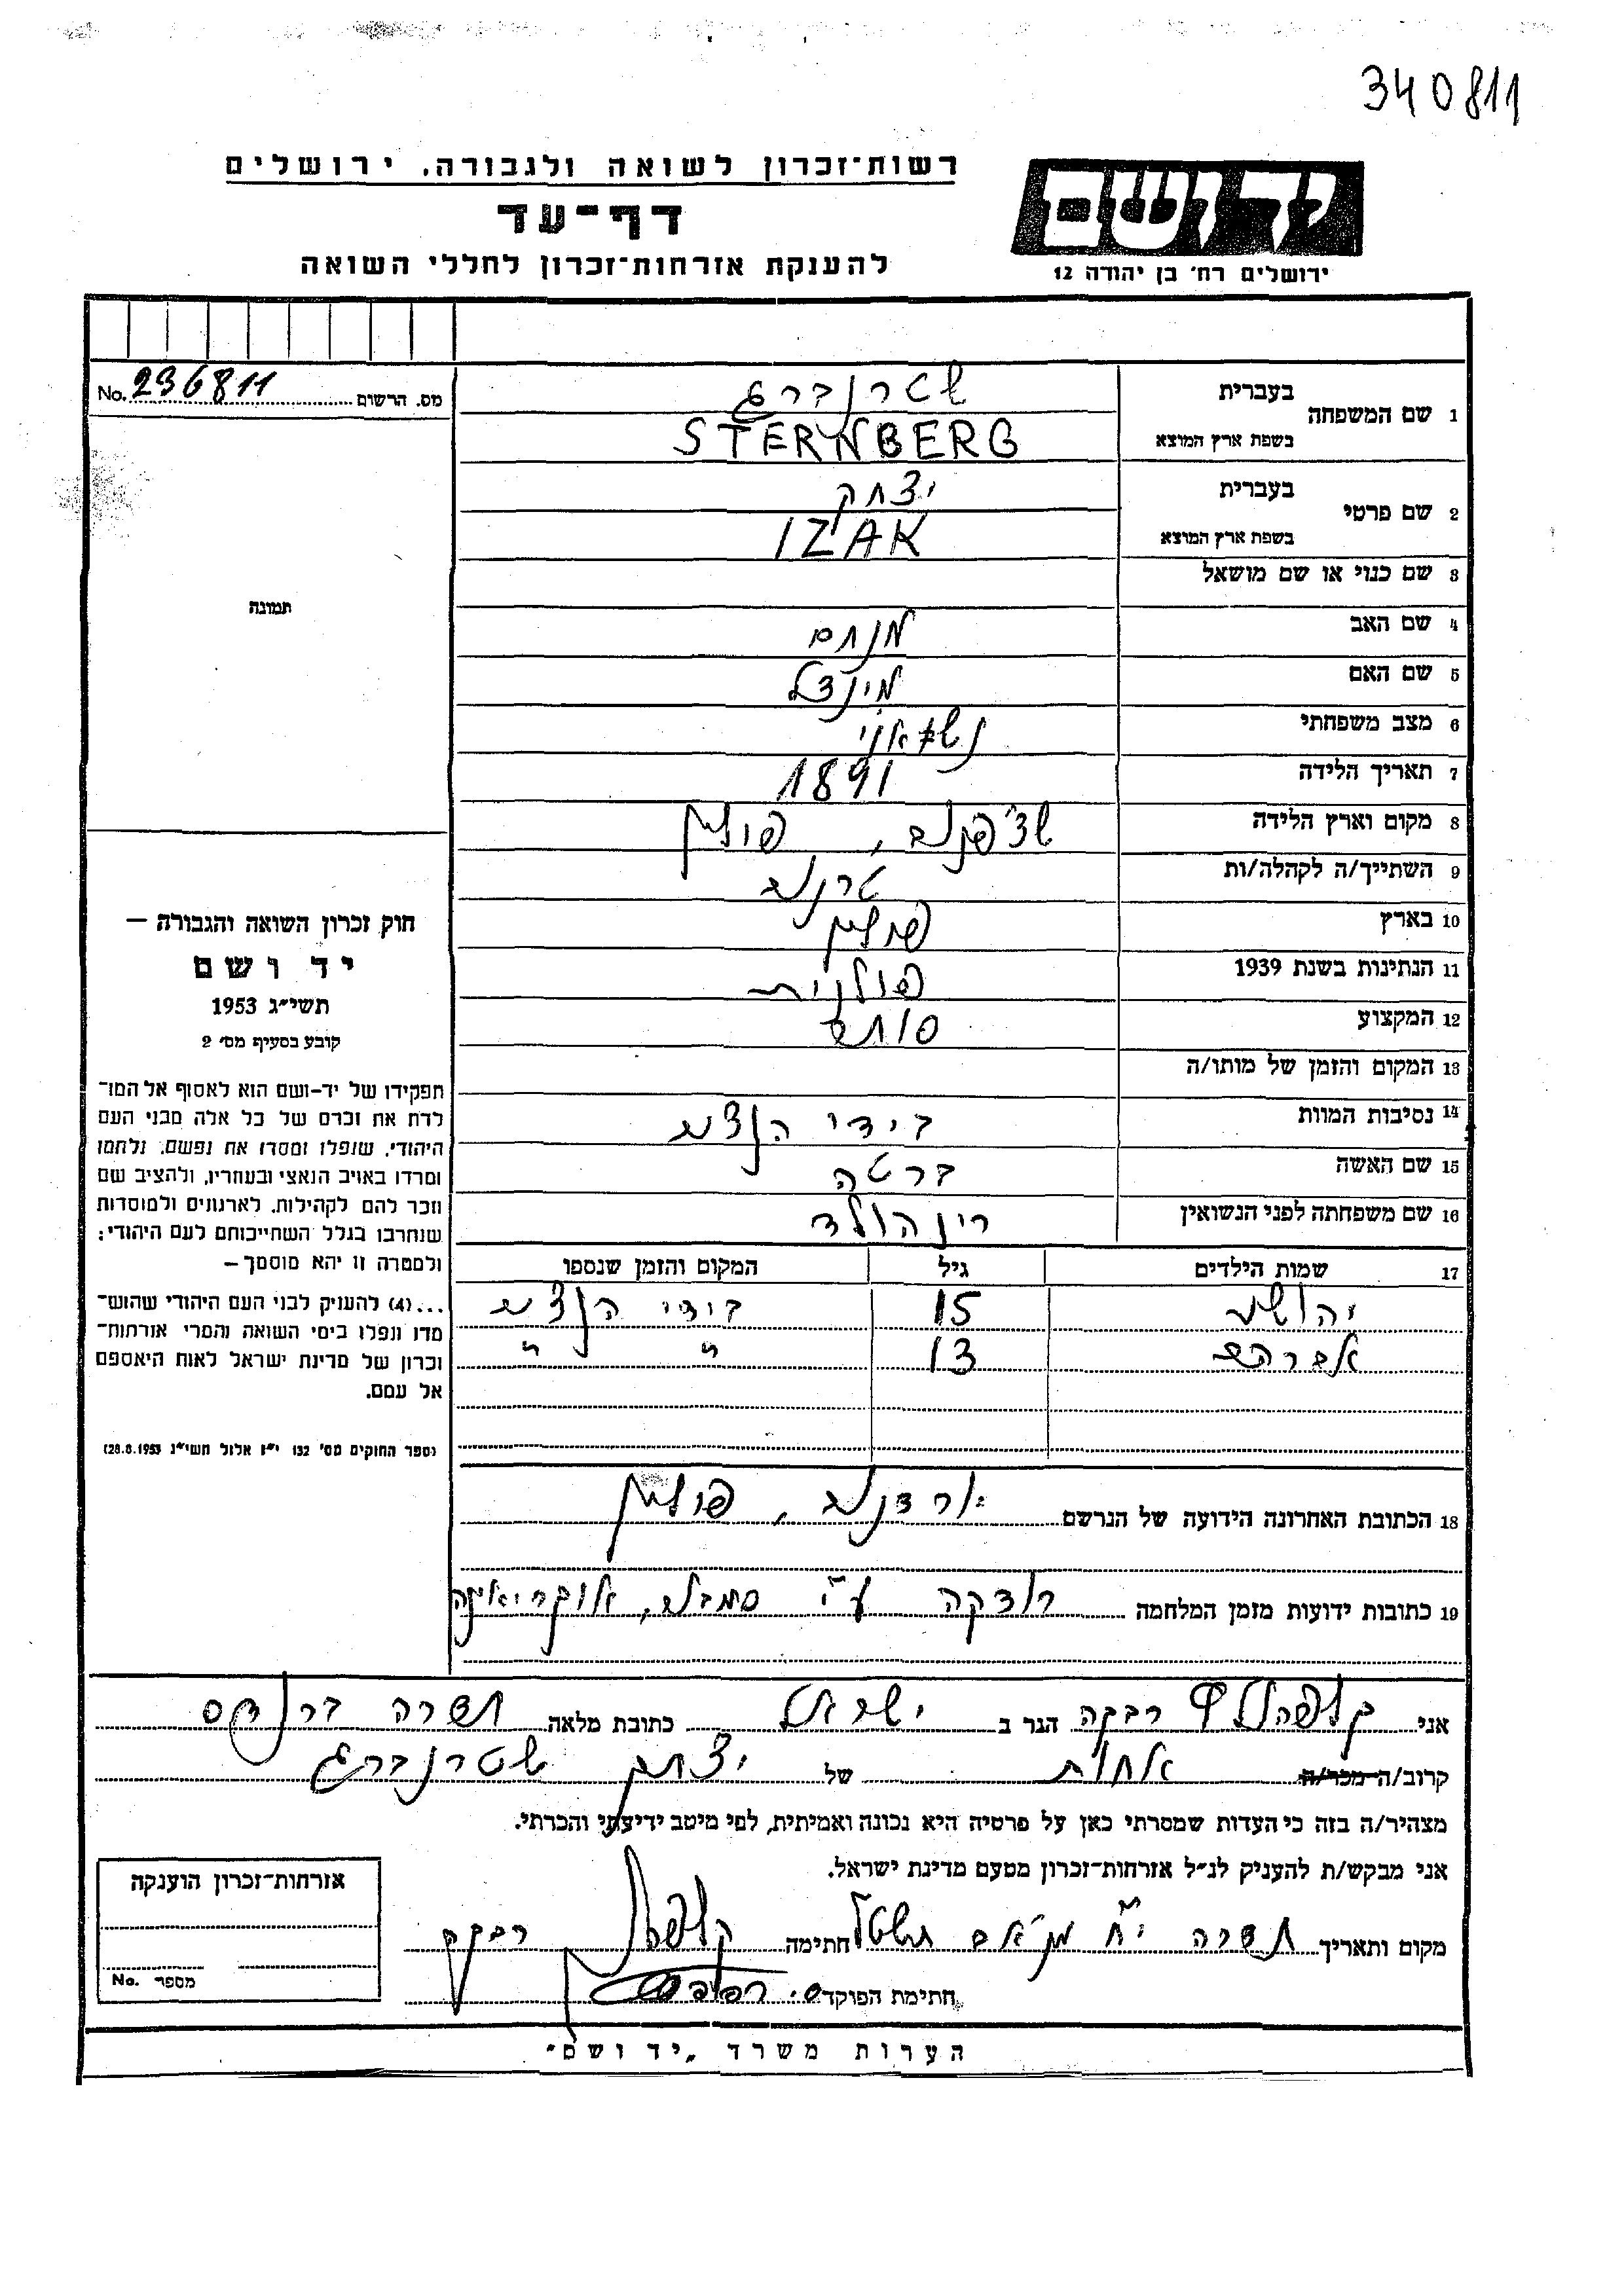 340811
יד ושם
ירושלים רח׳ בן יהודה 12
רשות־זכרון לשואה ולגבורה, ירושלים
דף־עד
להענקת אזרחות־זכרון לחללי השואה
מס. הרשום No. 236811
תמונה
1 שם המשפחה בעברית שטרנברג
בשפת ארץ המוצא STERNBERG
2 שם פרטי בעברית יצחק
בשפת ארץ המוצא IZAK
3 שם כנוי או שם מושאל
4 שם האב מנחם
5 שם האם מינדל
6 מצב משפחתי נשאוי
7 תאריך הלידה 1891
8 מקום וארץ הלידה שצ׳פנוב, פולין
9 השתייך/ה לקהלה/ות טרנוב
10 בארץ פולין
11 הנתינות בשנת 1939 פולנית
12 המקצוע סוחר
13 המקום והזמן של מותו/ה
14 נסיבות המוות בידי הנצים
15 שם האשה ברטה
16 שם משפחתה לפני הנשואין רינהולד
17 שמות הילדים גיל המקום והזמן שנספו
יהושע 15 בידי הנצים
אברהם 13 " "
18 הכתובת האחרונה הידועה של הנרשם פולין
19 כתובות ידועות מזמן המלחמה רודקה ע״י
חוק זכרון השואה והגבורה —
יד ושם
תשי״ג 1953
קובע בסעיף מס׳ 2
תפקידו של יד-ושם הוא לאסוף אל המו־
לדת את זכרם של כל אלה מבני העם
היהודי, שנפלו ומסרו את נפשם, נלחמו
ומרדו באויב הנאצי ובעוזריו, ולהציב שם
וזכר להם לקהילות, לארגונים ולמוסדות
שנחרבו בגלל השתייכותם לעם היהודי;
ולמטרה זו יהא מוסמך —
...(4) להעניק לבני העם היהודי שהוש־
מדו ונפלו בימי השואה והמרי אזרחות־
זכרון של מדינת ישראל לאות היאספם
אל עמם.
(ספר החוקים מס׳ 132 י״ז אלול תשי״ג 28.8.1953)
אני רבקה הגר ב ישראל כתובת מלאה חדרה ברנדס
קרוב/ה מכר/ה אחות של יצחק שטרנברג
מצהיר/ה בזה כי העדות שמסרתי כאן על פרטיה היא נכונה ואמיתית, לפי מיטב ידיעתי והכרתי.
אני מבקש/ת להעניק לנ״ל אזרחות־זכרון מטעם מדינת ישראל.
מקום ותאריך חדרה חתימה רבקה
חתימת הפוקד
אזרחות־זכרון הוענקה
מספר No.
הערות משרד „יד ושם״